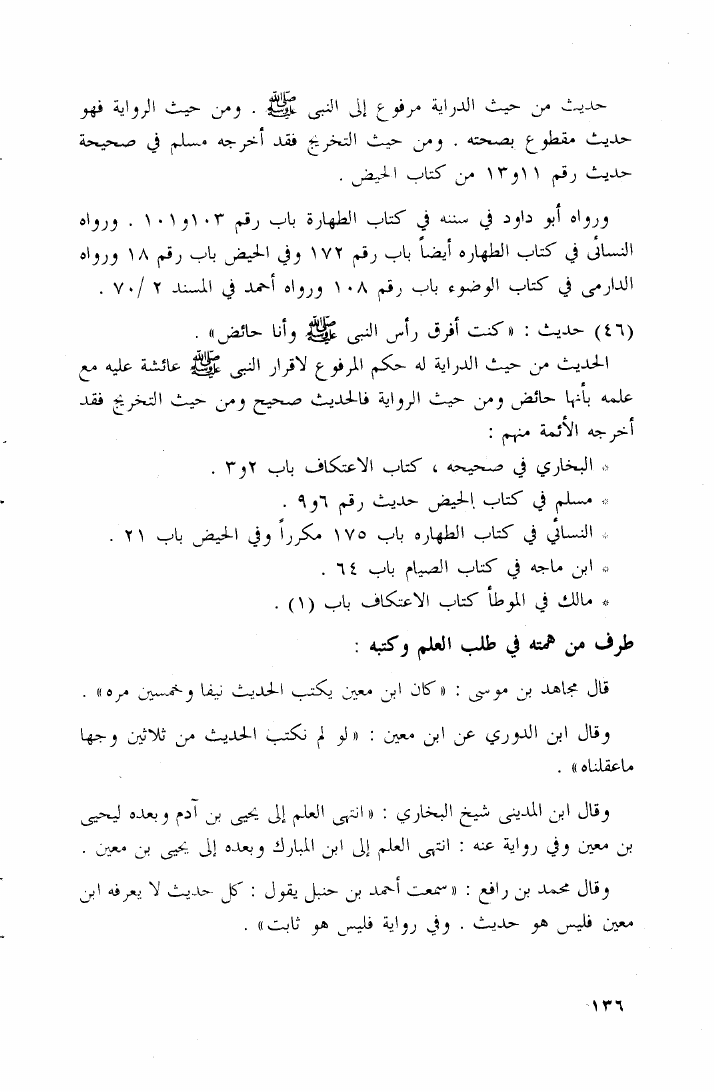 حديث من حيث الدراية مرفوع إلى النبى ﷺ . ومن حيث الرواية فهو
حديث مقطوع بصحته . ومن حيث التخريج فقد أخرجه مسلم في صحيحة
حديث رقم ١١و١٣ من كتاب الحيض .
ورواه أبو داود في سننه في كتاب الطهارة باب رقم ١٠٣و١٠١ . ورواه
النسائى في كتاب الطهاره أيضاً باب رقم ١٧٢ وفي الحيض باب رقم ١٨ ورواه
الدارمى في كتاب الوضوء باب رقم ١٠٨ ورواه أحمد في المسند ٢ /٧٠ .
(٤٦) حديث : «كنت أفرق رأس النبى ﷺ وأنا حائض» .
الحديث من حيث الدراية له حكم المرفوع لاقرار النبى ﷺ عائشة عليه مع
علمه بأنها حائض ومن حيث الرواية فالحديث صحيح ومن حيث التخريج فقد
أخرجه الأئمة منهم :
* البخاري في صحيحه ، كتاب الاعتكاف باب ٢و٣ .
* مسلم في كتاب الحيض حديث رقم ٦و٩ .
* النسائي في كتاب الطهاره باب ١٧٥ مكرراً وفي الحيض باب ٢١ .
* ابن ماجه في كتاب الصيام باب ٦٤ .
* مالك في الموطأ كتاب الاعتكاف باب (١) .
طرف من همته في طلب العلم وكتبه :
قال مجاهد بن موسى : «كان ابن معين يكتب الحديث نيفا وخمسين مره» .
وقال ابن الدوري عن ابن معين : «لو لم نكتب الحديث من ثلاثين وجها
ماعقلناه» .
وقال ابن المدينى شيخ البخاري : «انتهى العلم إلى يحيى بن آدم وبعده ليحيى
بن معين وفي رواية عنه : انتهى العلم إلى ابن المبارك وبعده إلى يحيى بن معين .
وقال محمد بن رافع : «سمعت أحمد بن حنبل يقول : كل حديث لا يعرفه ابن
معين فليس هو حديث . وفي رواية فليس هو ثابت» .
١٣٦